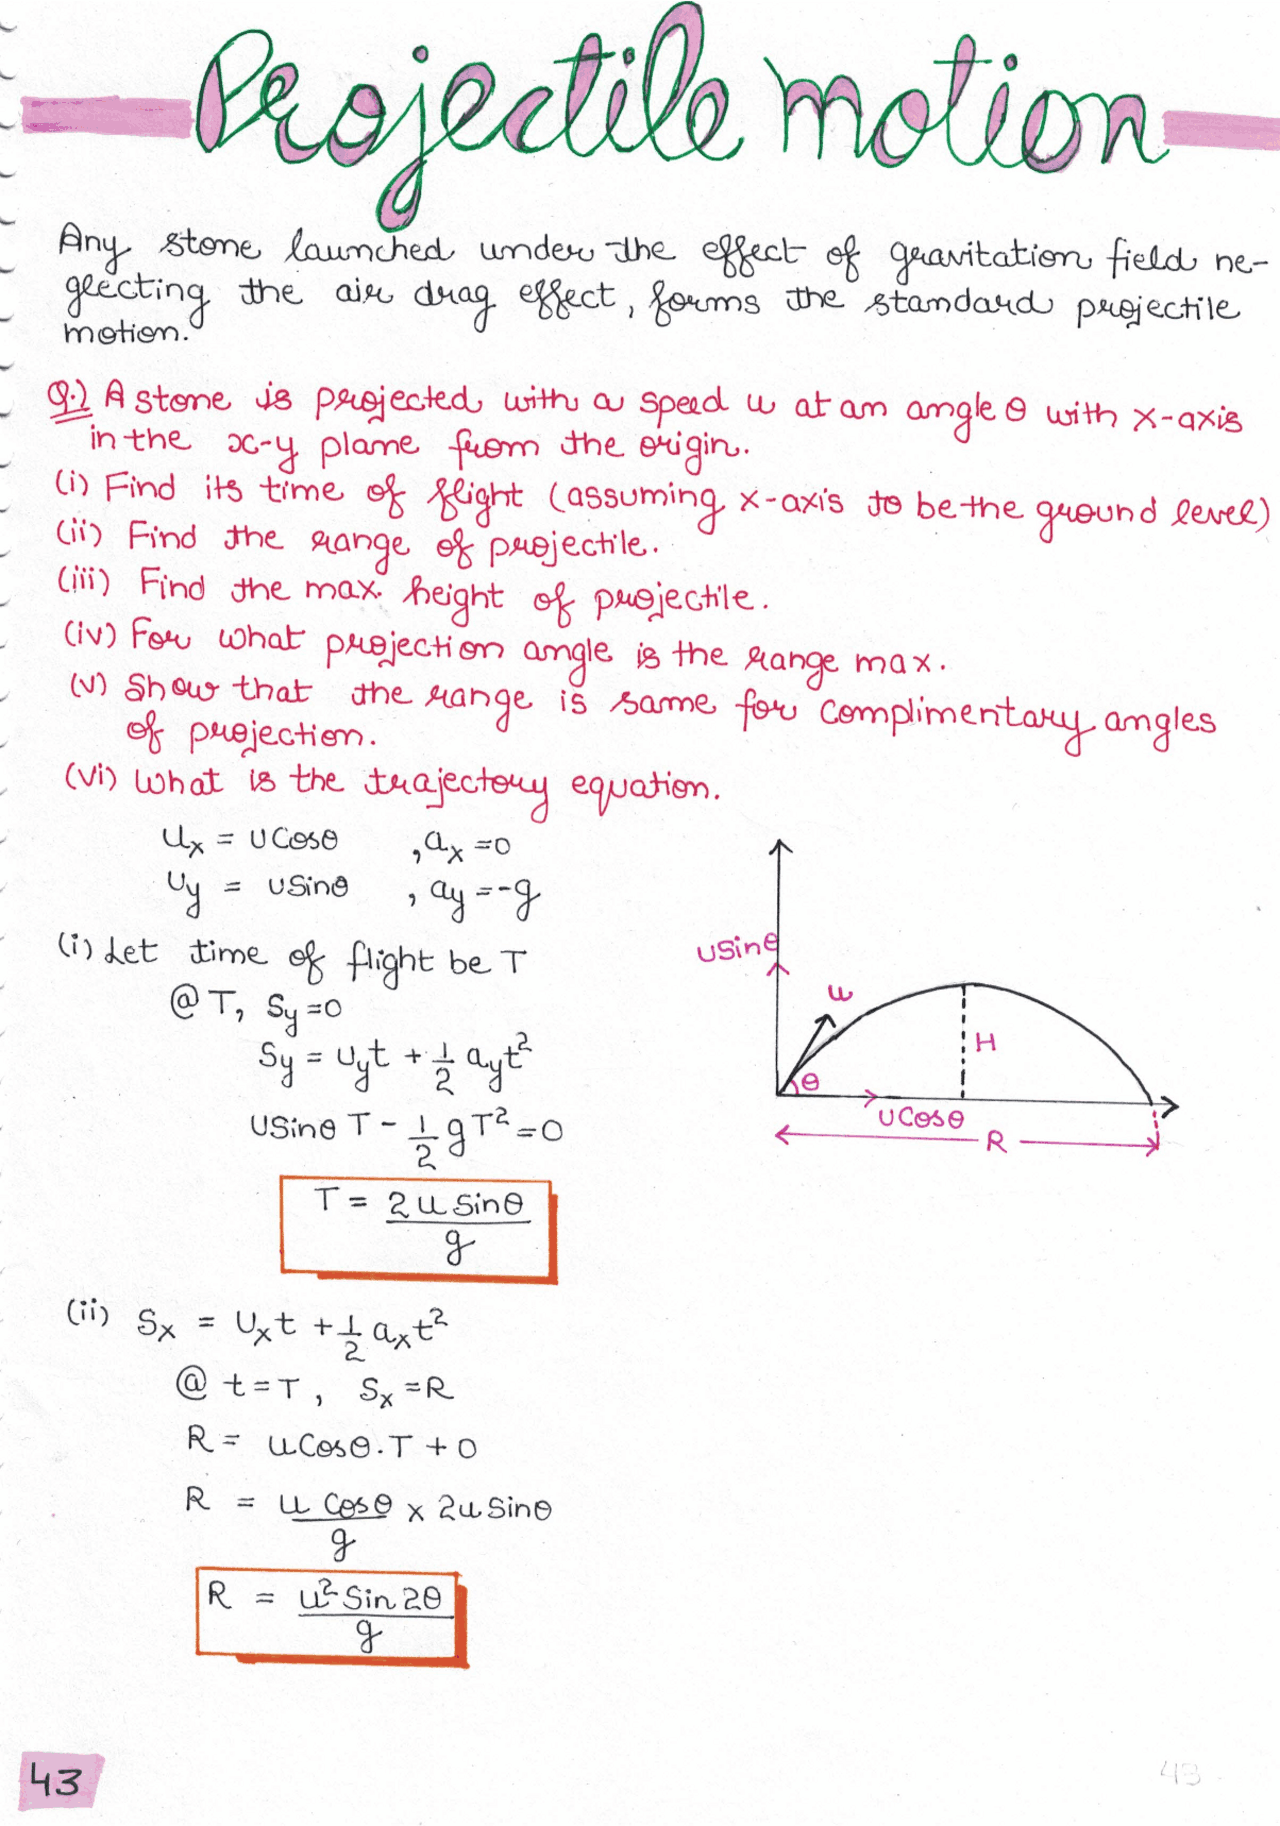 Projectile motion
Any stone launched under the effect of gravitation field ne-
glecting the air drag effect, forms the standard projectile
motion.
Q.) A stone is projected with a speed u at an angle θ with x-axis
in the x-y plane from the origin.
(i) Find its time of flight (assuming x-axis to be the ground level)
(ii) Find the range of projectile.
(iii) Find the max. height of projectile.
(iv) For what projection angle is the range max.
(v) Show that the range is same for complimentary angles
of projection.
(vi) What is the trajectory equation.
Ux = UCosθ , ax = 0
Uy = USinθ , ay = -g
(i) Let time of flight be T
@ T, Sy = 0
Sy = Uyt + 1/2 ayt²
USinθ T - 1/2 gT² = 0
T = 2u Sinθ / g
USinθ
u
θ
H
UCosθ
R
(ii) Sx = Uxt + 1/2 axt²
@ t = T, Sx = R
R = uCosθ.T + 0
R = u Cosθ / g x 2u Sinθ
R = u² Sin 2θ / g
43
43